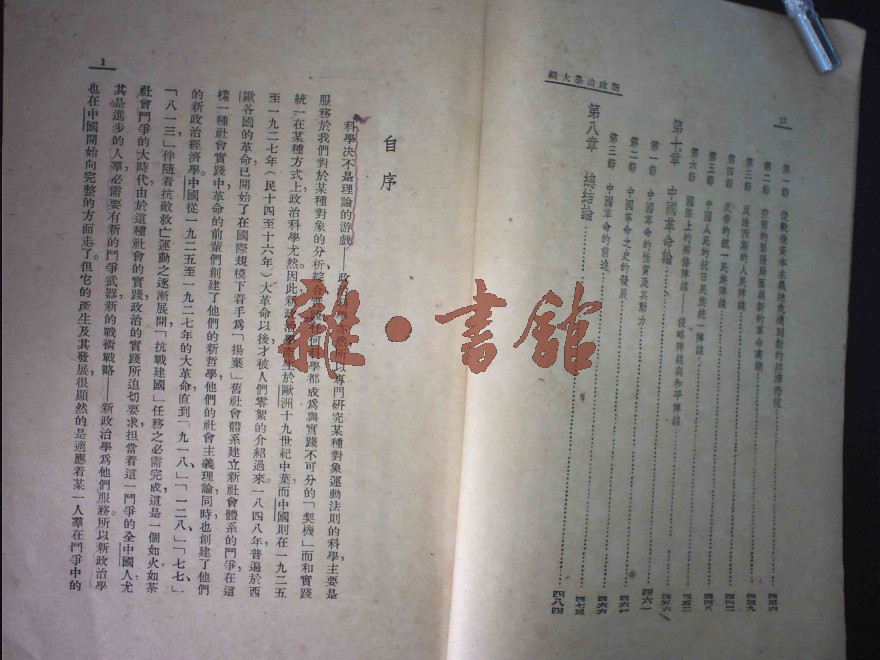 新政治學大綱
12
第一節
第二節
第三節 反法西斯的人民陣線
第四節 反帝的統一民族陣線
第五節 中國人民的抗日民族統一陣線
第六節 國際上的兩條陣線——侵略陣線與和平陣線
第十章 中國革命論
第一節 中國革命的性質及其動力 四六一
第二節 中國革命之史的發展
第三節 中國革命的前途
第八章 總結論 四八四
自序
科學決不是理論的游戲——政治科學亦然所以專門研究某種對象運動法則的科學主要是
服務於我們對於某種對象的分析綜合任何科學都成爲與實踐不可分的「契機」而和實踐
統一在某種方式上政治科學尤然因此新政治學產生於歐洲十九世紀中葉而中國則在一九二五
至一九二七年(民十四至十六年)大革命以後才被人們零絮的介紹過來一八四八年普遍於西
歐各國的革命已開始了在國際規模下着手爲「揚棄」舊社會體系建立新社會體系的鬥爭在這
樣一種社會實踐中革命的前輩們創建了他們的新哲學他們的社會主義理論同時也創建了他們
的新政治經濟學中國從一九二五至一九二七年的大革命直到「九一八」、「一二八」、「七七」、
「八一三」伴隨着抗敵救亡運動之逐漸展開「抗戰建國」任務之必需完成這是一個如火如荼
社會鬥爭的大時代由於這種社會的實踐政治的實踐所迫切要求担當着這一鬥爭的全中國人尤
其是進步的人羣必需要有新的鬥爭武器新的戰術戰略——新政治學爲他們服務所以新政治學
也在中國開始向完整的方面走了但它的產生及其發展很顯然的是適應着某一人羣在鬥爭中的
1
雜·書館